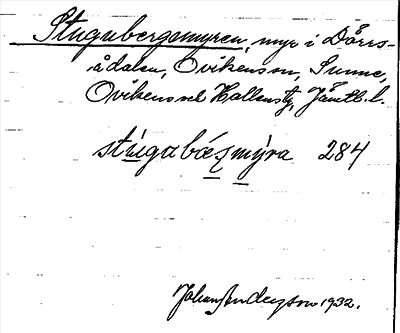 Stugubergsmyren, myr i Dörrs-
ådalen, Ovikens sn, Sunne,
Ovikens och Hallens tg, Jämtl. l.
stúgabázmýra 284
Johan Anderzson 1932.